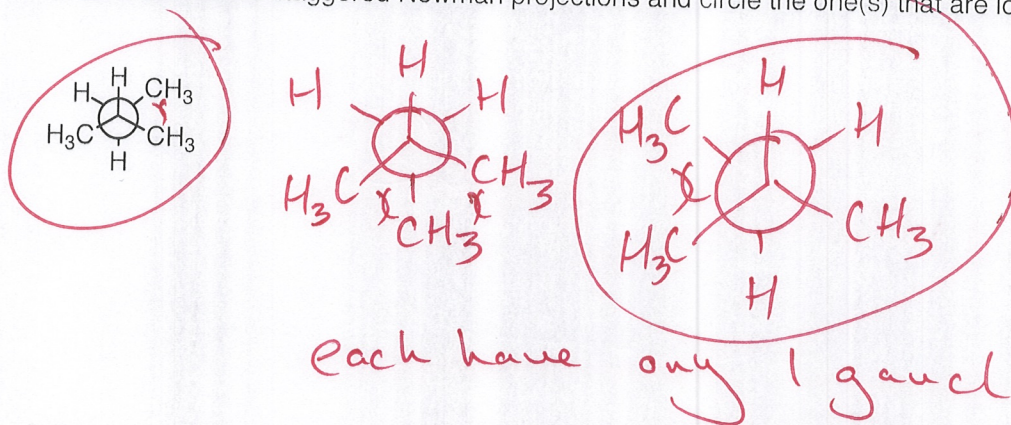 ggered Newman projections and circle the one(s) that are lo
H H CH3
H3C CH3
H
H H H
H3C CH3
CH3
H
H3C H
H3C CH3
H
each have only 1 gauch